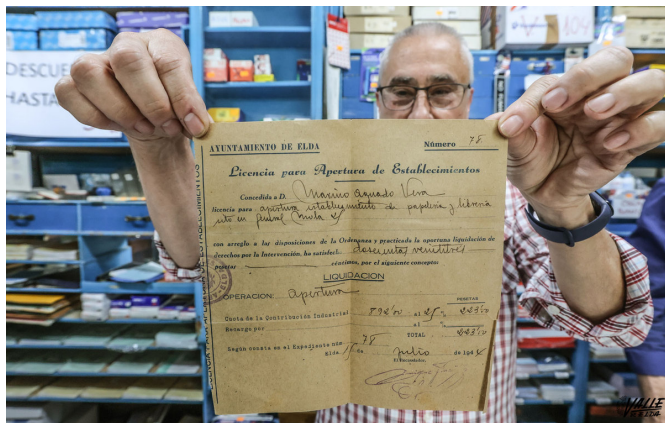 DESCUE
HASTA
104
AYUNTAMIENTO DE ELDA
Número 78
Licencia para Apertura de Establecimientos
Concedida a D. Marino Aguado Vera
licencia para apertura establecimiento de papelería y librería
sito en General Mola
con arreglo a las disposiciones de la Ordenanza y practicada la oportuna liquidación de
derechos por la Intervención, ha satisfecho doscientas veintitres
pesetas céntimos, por el siguiente concepto:
LIQUIDACION
OPERACION: apertura
PESETAS
Cuota de la Contribución Industrial 892'00 al 25 % 223'00
Recargo por al %
TOTAL 223'00
Según consta en el Expediente núm. 78
Elda, de Julio de 196
El Recaudador,
VALLE
DE ELDA